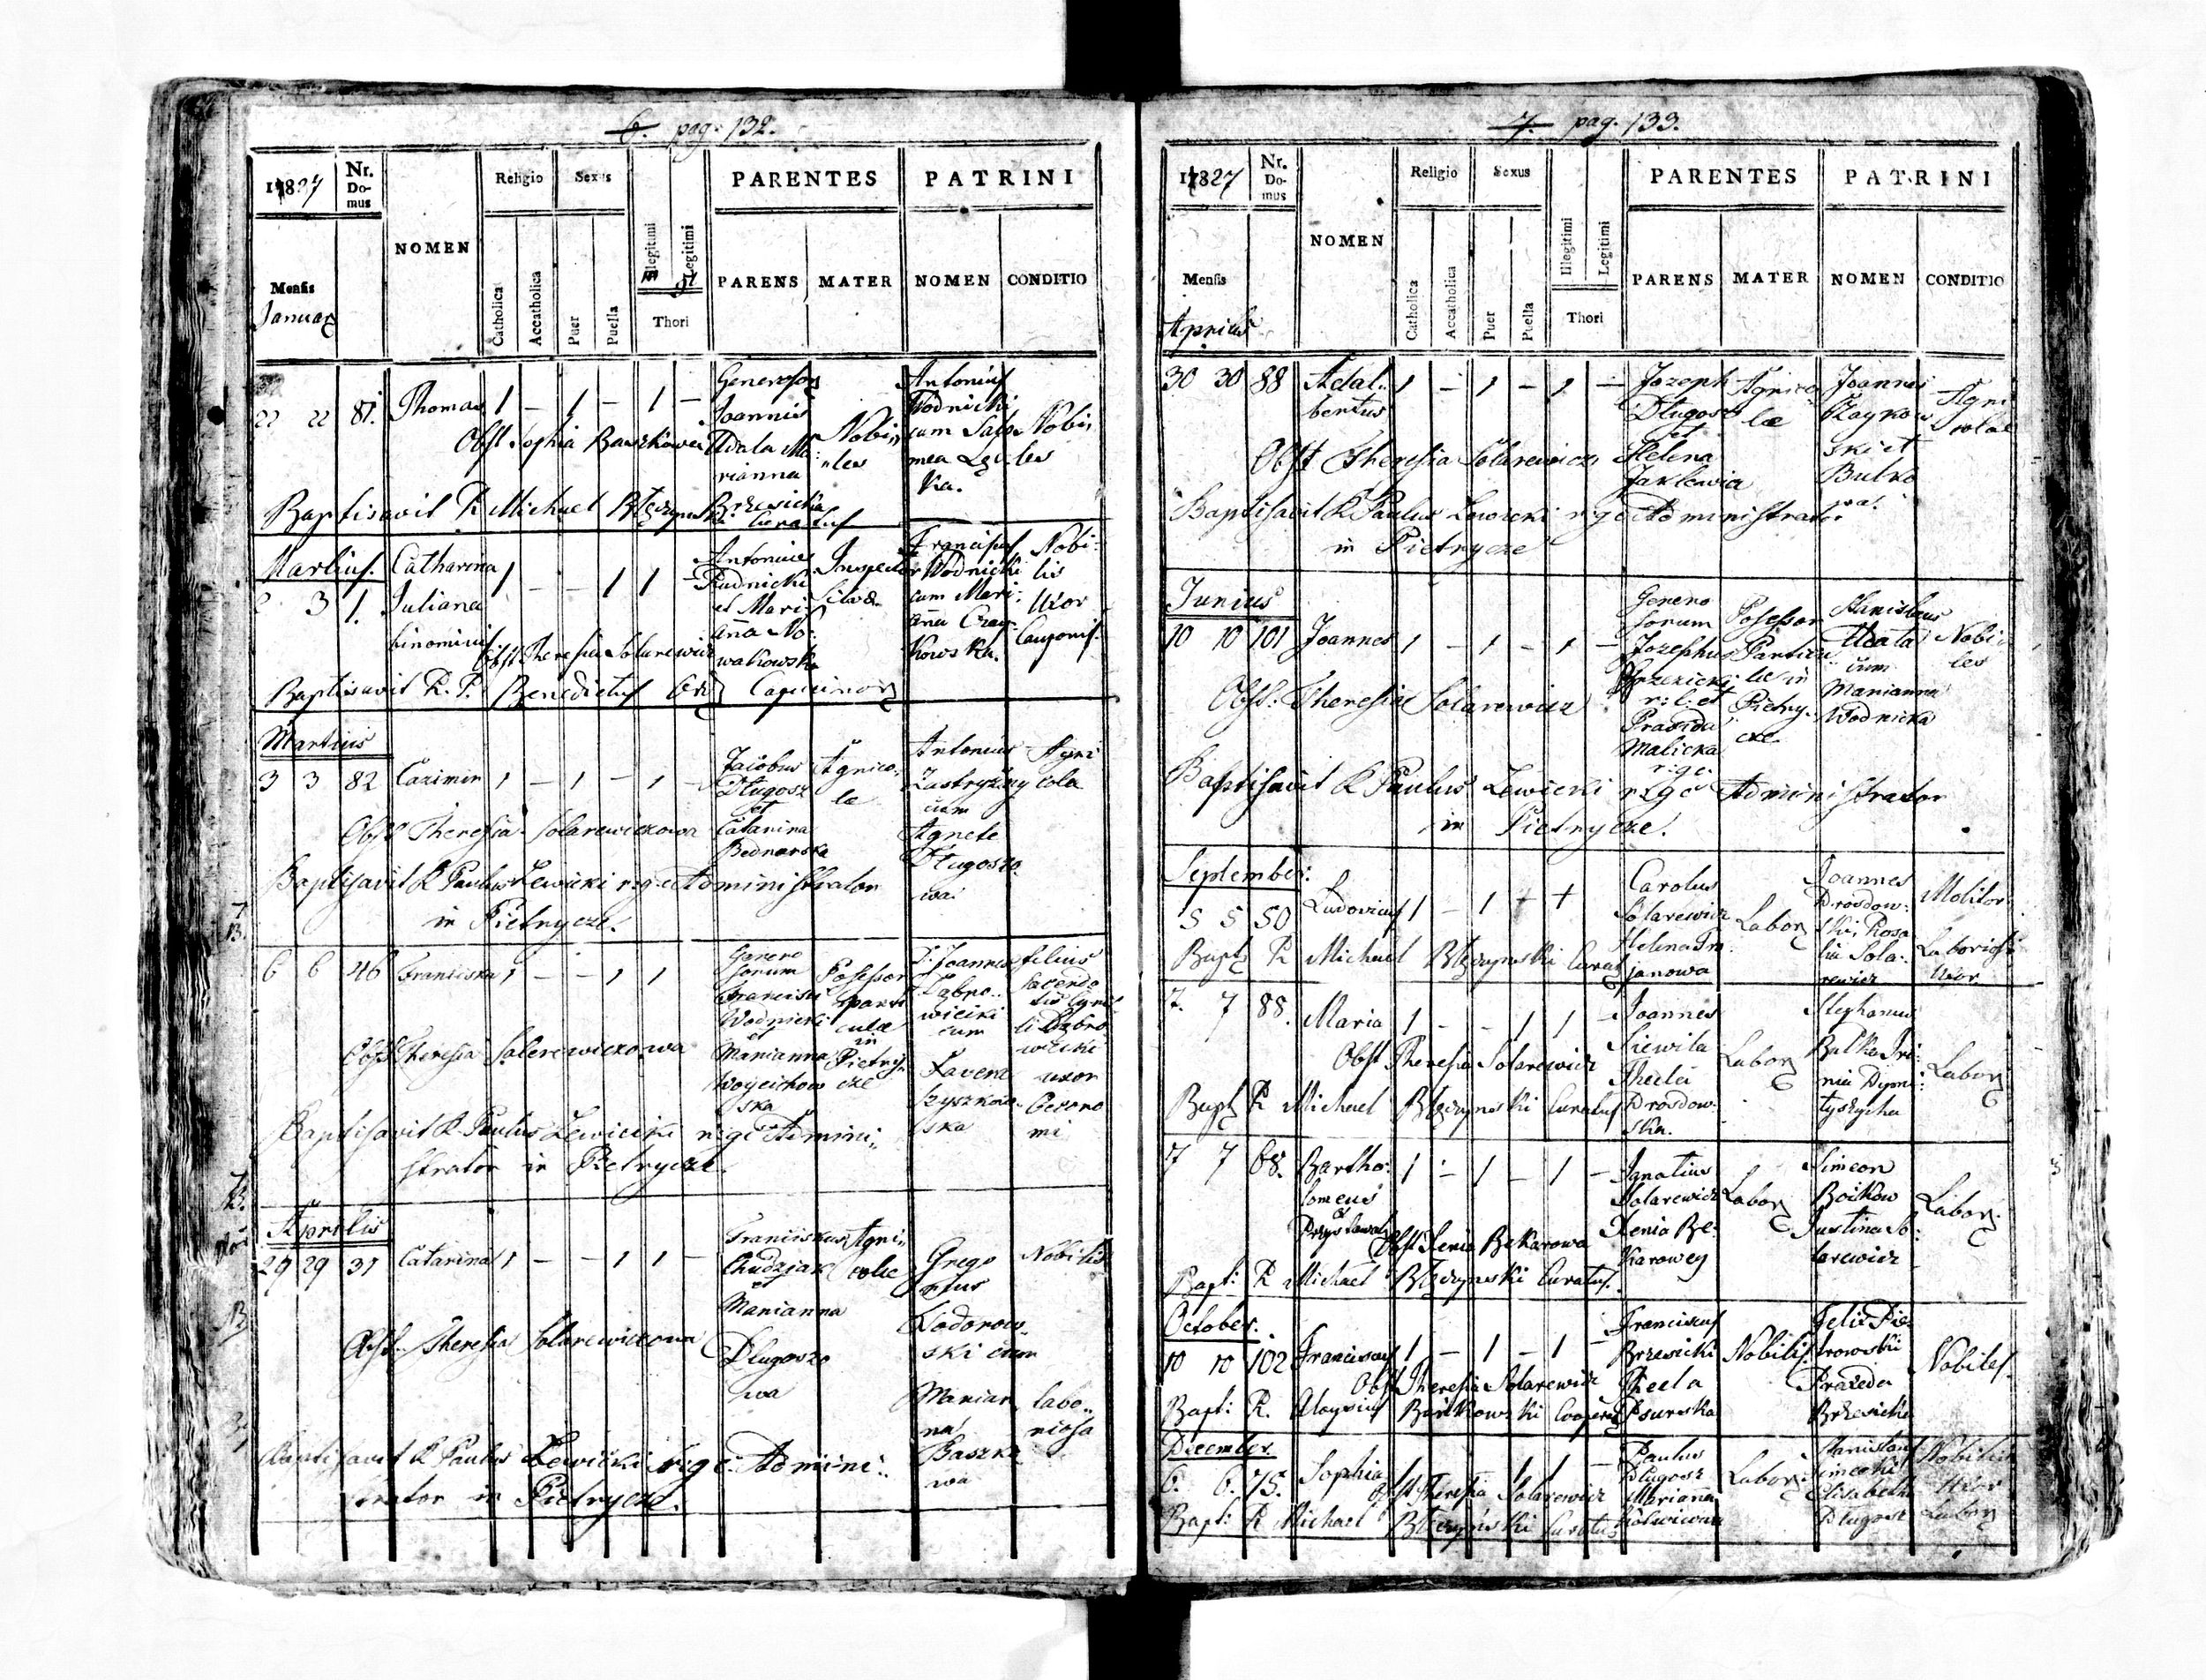 6. pag. 132.
1827 Nr. Domus NOMEN Religio Sexus Illegitimi Legitimi PARENTES PATRINI
Mensis Catholica Accatholica Puer Puella Thori PARENS MATER NOMEN CONDITIO
Januar
22 22 81. Thomas 1 – 1 – 1 –
Generosor
Joannis
Udala Ma
rianna
Brzesicka
Nobi
les
Antonius
Wodnicki
cum Salo
mea
ka.
Nobi
les
Obst Sophia Baszkowa
Baptisavit R Michael Błczynski Curatus
Martius. Catharina 1 – – 1 1 –
2 3 1. Juliana
binominis
Antonius
Rudnicki
et Mari
anna No:
wakowska
Inspector
Silvæ
Franciscus
Wodnicki
cum Mari:
anna Czay:
kowska.
Nobi:
lis
Uxor
Cauponis.
Obst Theresia Solarewicz
Baptisavit R. P. Benedictus Ord Capucinor
Martius
3 3 82 Casimir 1 – 1 – 1 –
Jacobus
Długosz
et
Catarina
Bednarska
Agrico
læ
Antonius
Zastryżny
cum
Agnete
Długoszo
wa
Agri
cola
Obst Theresia Solarewiczowa
Baptisavit R Paulus Lewicki r: g: c: Administrator
in Pietrycze.
6 6 46 Franciska 1 – – 1 1
Genero
sorum
Francisci
Wodnicki
et
Marianna
Woycichow
ska
Posessor
parti
culæ
in
Pietry
cze
Joannes
wicki
cum
Szyszkow
ska
filius
Sacerdo
tis Cyril
li Dąbro
wicki
uxor
Oecono
mi
Obst Theresia Solerewiczowa
Baptisavit R Paulus Lewicki r: g: c: Admini
strator in Pietrycze.
Aprilis
29 29 37 Catarina 1 – – 1 1 –
Franciskus
Chudzjak
et
Marianna
Długoszo
wa
Agri
colæ
Grego
rius
Lodorow
ski cum
Marian
na
Baszko
wa
Nobilis
labo
riosa
Obst. Theresia Solarewiczowa
Baptisavit R Paulus Lewicki r: g: c: Admini
strator in Pietrycze.
7. pag. 133.
1827 Nr. Domus NOMEN Religio Sexus Illegitimi Legitimi PARENTES PATRINI
Mensis Catholica Accatholica Puer Puella Thori PARENS MATER NOMEN CONDITIO
Aprilis
30 30 88 Adal:
bertus 1 – 1 – 1 –
Jozeph
Długosz
et
Helena
Jaklewicz
Agrico
læ
Joannes
Czaykow
ski et
Butko
wa.
Agri
colae
Obst Theresia Solarewicz
Baptisavit R Paulus Lewicki r: g: c: Administrator
in Pietrycze
Junius
10 10 101 Joannes 1 – 1 – 1 –
Genero
sorum
Josephus
Brzezicki
r: l: et
Praxeda
Malicka
r: g: c:
Posessor
Particu
læ in
Pietry
cze.
Stanislaus
Udala
cum
Marianna
Wodnicka
Nobi
les
Obst: Theresia Solarewicz
Baptisavit R Paulus Lewicki r: g: c: Administrator
in Pietrycze.
September.
5 5 50 Ludovicus 1 – 1 + +
Carolus
Solarewicz
Helena Tro
janowa
Labor
Joannes
Drosdow:
ski, Rosa
lia Sola:
rewicz
Molitor.
Laboriosi
Uxor
Bapt R Michael Błczynski Curat
7. 7 88. Maria 1 – – 1 1 –
Joannes
Siewila
Thecla
Drosdow:
ska.
Labor
Stephanus
Butka Iri:
nia Dym:
tyszycha
Labor
Obst Theresia Solarewicz
Bapt R Michael Błczynski Curatus
7 7 68. Bartho:
lomeus
et
Przysławaly 1 – 1 – 1 –
Ignatius
Solarewicz
Xenia Be:
karowey
Labor
Simeon
Boikow
Justina So:
larewicz
Labor:
Obst Xenia Bekarowa
Bapt: R Michael Błczynski Curatus.
October.
10 10 102 Franciscus 1 – 1 – 1 –
Franciscus
Brzesicki
Thecla
Psurska
Nobilis
Felix Pie
trowski
Praxeda
Brzesicka
Nobiles.
Obst Theresia Solarewicz
Bapt: R. Aloysius Bartkowski Cooperat
December.
6. 6. 75. Sophia 1 – – 1 1 –
Paulus
Długosz
Marianna
Labor
Stanislaus
Elisabetha
Długosz
Nobilis
Uxor
Labor
Obst Theresia Solarewicz
Bapt: R Michael Błczynski Curatus